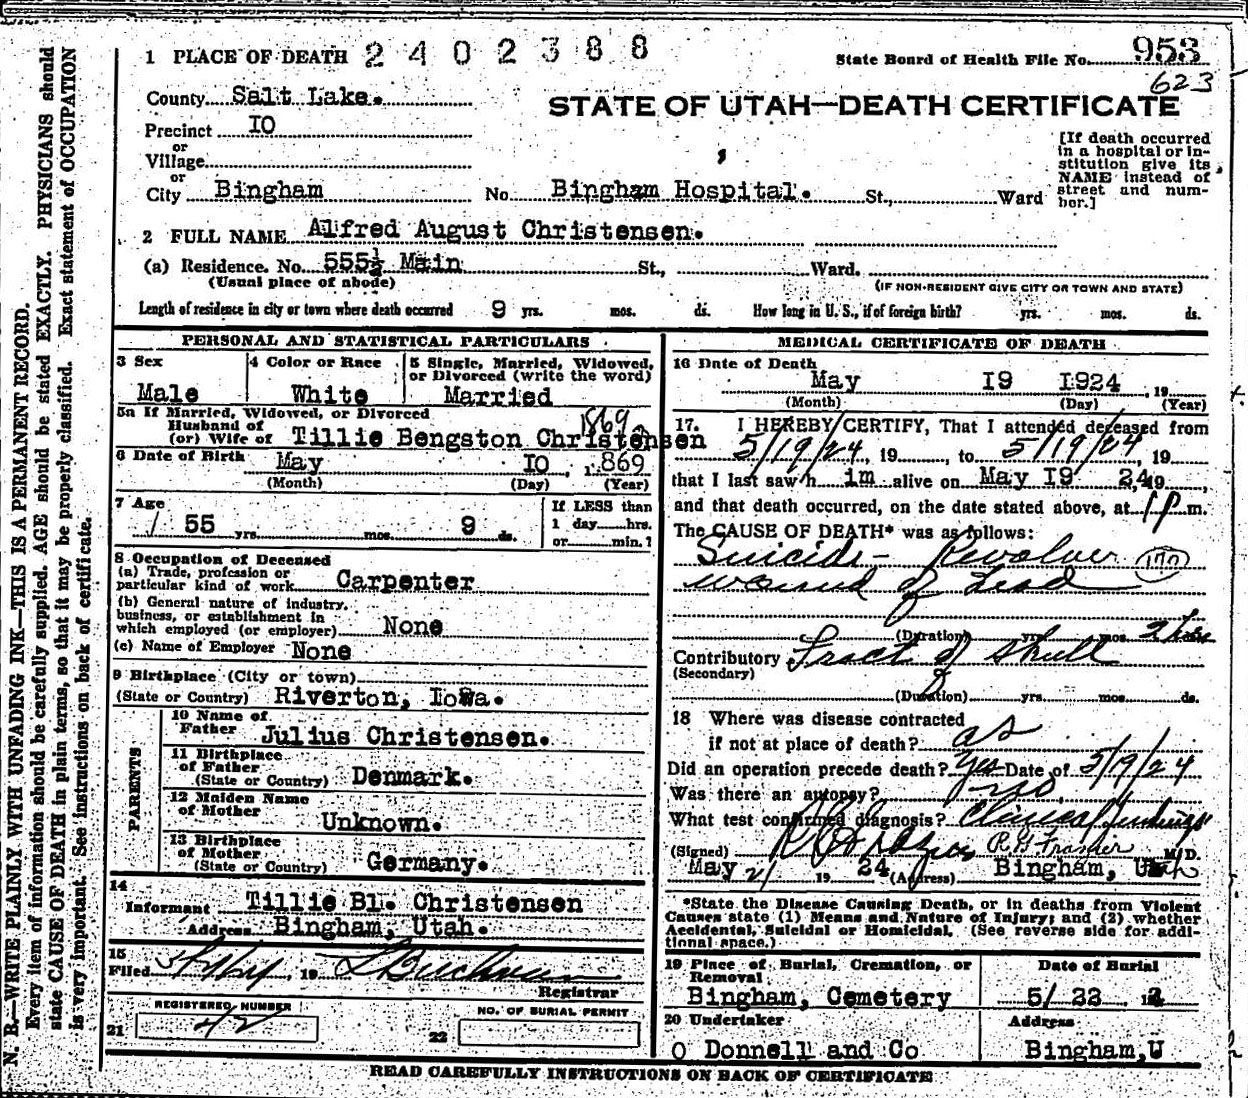 1 PLACE OF DEATH 2402388
State Board of Health File No. 953
623
County Salt Lake.
STATE OF UTAH—DEATH CERTIFICATE
Precinct 10
or
Village
or
City Bingham No. Bingham Hospital. St., Ward
[If death occurred
in a hospital or in-
stitution give its
NAME instead of
street and num-
ber.]
2 FULL NAME Alfred August Christensen.
(a) Residence. No. 555½ Main St., Ward.
(Usual place of abode) (IF NON-RESIDENT GIVE CITY OR TOWN AND STATE)
Length of residence in city or town where death occurred 9 yrs. mos. ds. How long in U. S., if of foreign birth? yrs. mos. ds.
PERSONAL AND STATISTICAL PARTICULARS
3 Sex
Male
4 Color or Race
White
5 Single, Married, Widowed,
or Divorced (write the word)
Married
5a If Married, Widowed, or Divorced
Husband of
(or) Wife of Tillie Bengston Christensen
1869
6 Date of Birth May 10, 1869
(Month) (Day) (Year)
7 Age
55 yrs. mos. 9 ds.
If LESS than
1 day hrs.
or min.?
8 Occupation of Deceased
(a) Trade, profession or
particular kind of work Carpenter
(b) General nature of industry,
business, or establishment in
which employed (or employer) None
(c) Name of Employer None
9 Birthplace (City or town)
(State or Country) Riverton, Iowa.
PARENTS
10 Name of
Father Julius Christensen.
11 Birthplace
of Father
(State or Country) Denmark.
12 Maiden Name
of Mother
Unknown.
13 Birthplace
of Mother
(State or Country) Germany.
14
Informant Tillie Bl. Christensen
Address Bingham, Utah.
15
Filed 19
Registrar
REGISTERED NUMBER
21 42
NO. OF BURIAL PERMIT
22
MEDICAL CERTIFICATE OF DEATH
16 Date of Death
May 19 1924, 19
(Month) (Day) (Year)
17. I HEREBY CERTIFY, That I attended deceased from
5/19/24, 19, to 5/19/24, 19
that I last saw h im alive on May 19 24, 19,
and that death occurred, on the date stated above, at 1 p m.
The CAUSE OF DEATH* was as follows:
Suicide - Revolver 170
wound of head
(Duration) yrs. mos. 2 hrs
Contributory Fract of Skull
(Secondary)
(Duration) yrs. mos. ds.
18 Where was disease contracted
if not at place of death? as
Did an operation precede death? Yes Date of 5/19/24
Was there an autopsy? no
What test confirmed diagnosis? Clinical findings
(Signed) R G Frazier M.D.
May 21 19 24 (Address) Bingham, Utah
*State the Disease Causing Death, or in deaths from Violent
Causes state (1) Means and Nature of Injury; and (2) whether
Accidental, Suicidal or Homicidal. (See reverse side for addi-
tional space.)
19 Place of Burial, Cremation, or
Removal
Bingham, Cemetery
Date of Burial
5/ 22
20 Undertaker
O Donnell and Co
Address
Bingham,U
READ CAREFULLY INSTRUCTIONS ON BACK OF CERTIFICATE
N. B.—WRITE PLAINLY WITH UNFADING INK—THIS IS A PERMANENT RECORD.
Every item of information should be carefully supplied. AGE should be stated EXACTLY. PHYSICIANS should
state CAUSE OF DEATH in plain terms, so that it may be properly classified. Exact statement of OCCUPATION
is very important. See instructions on back of certificate.